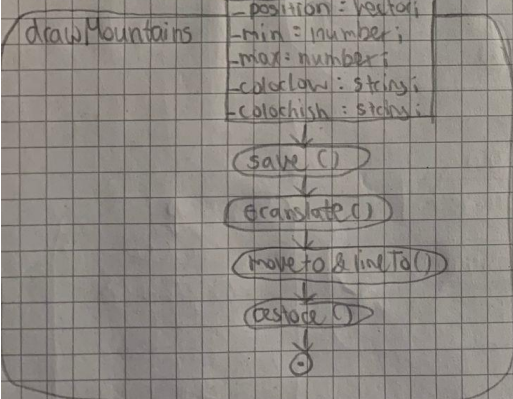 drawMountains
-position : vector;
-min : number;
-max : number;
-colorlow : string;
-colorhigh : string;
save ()
translate()
moveto & lineTo()
restore ()